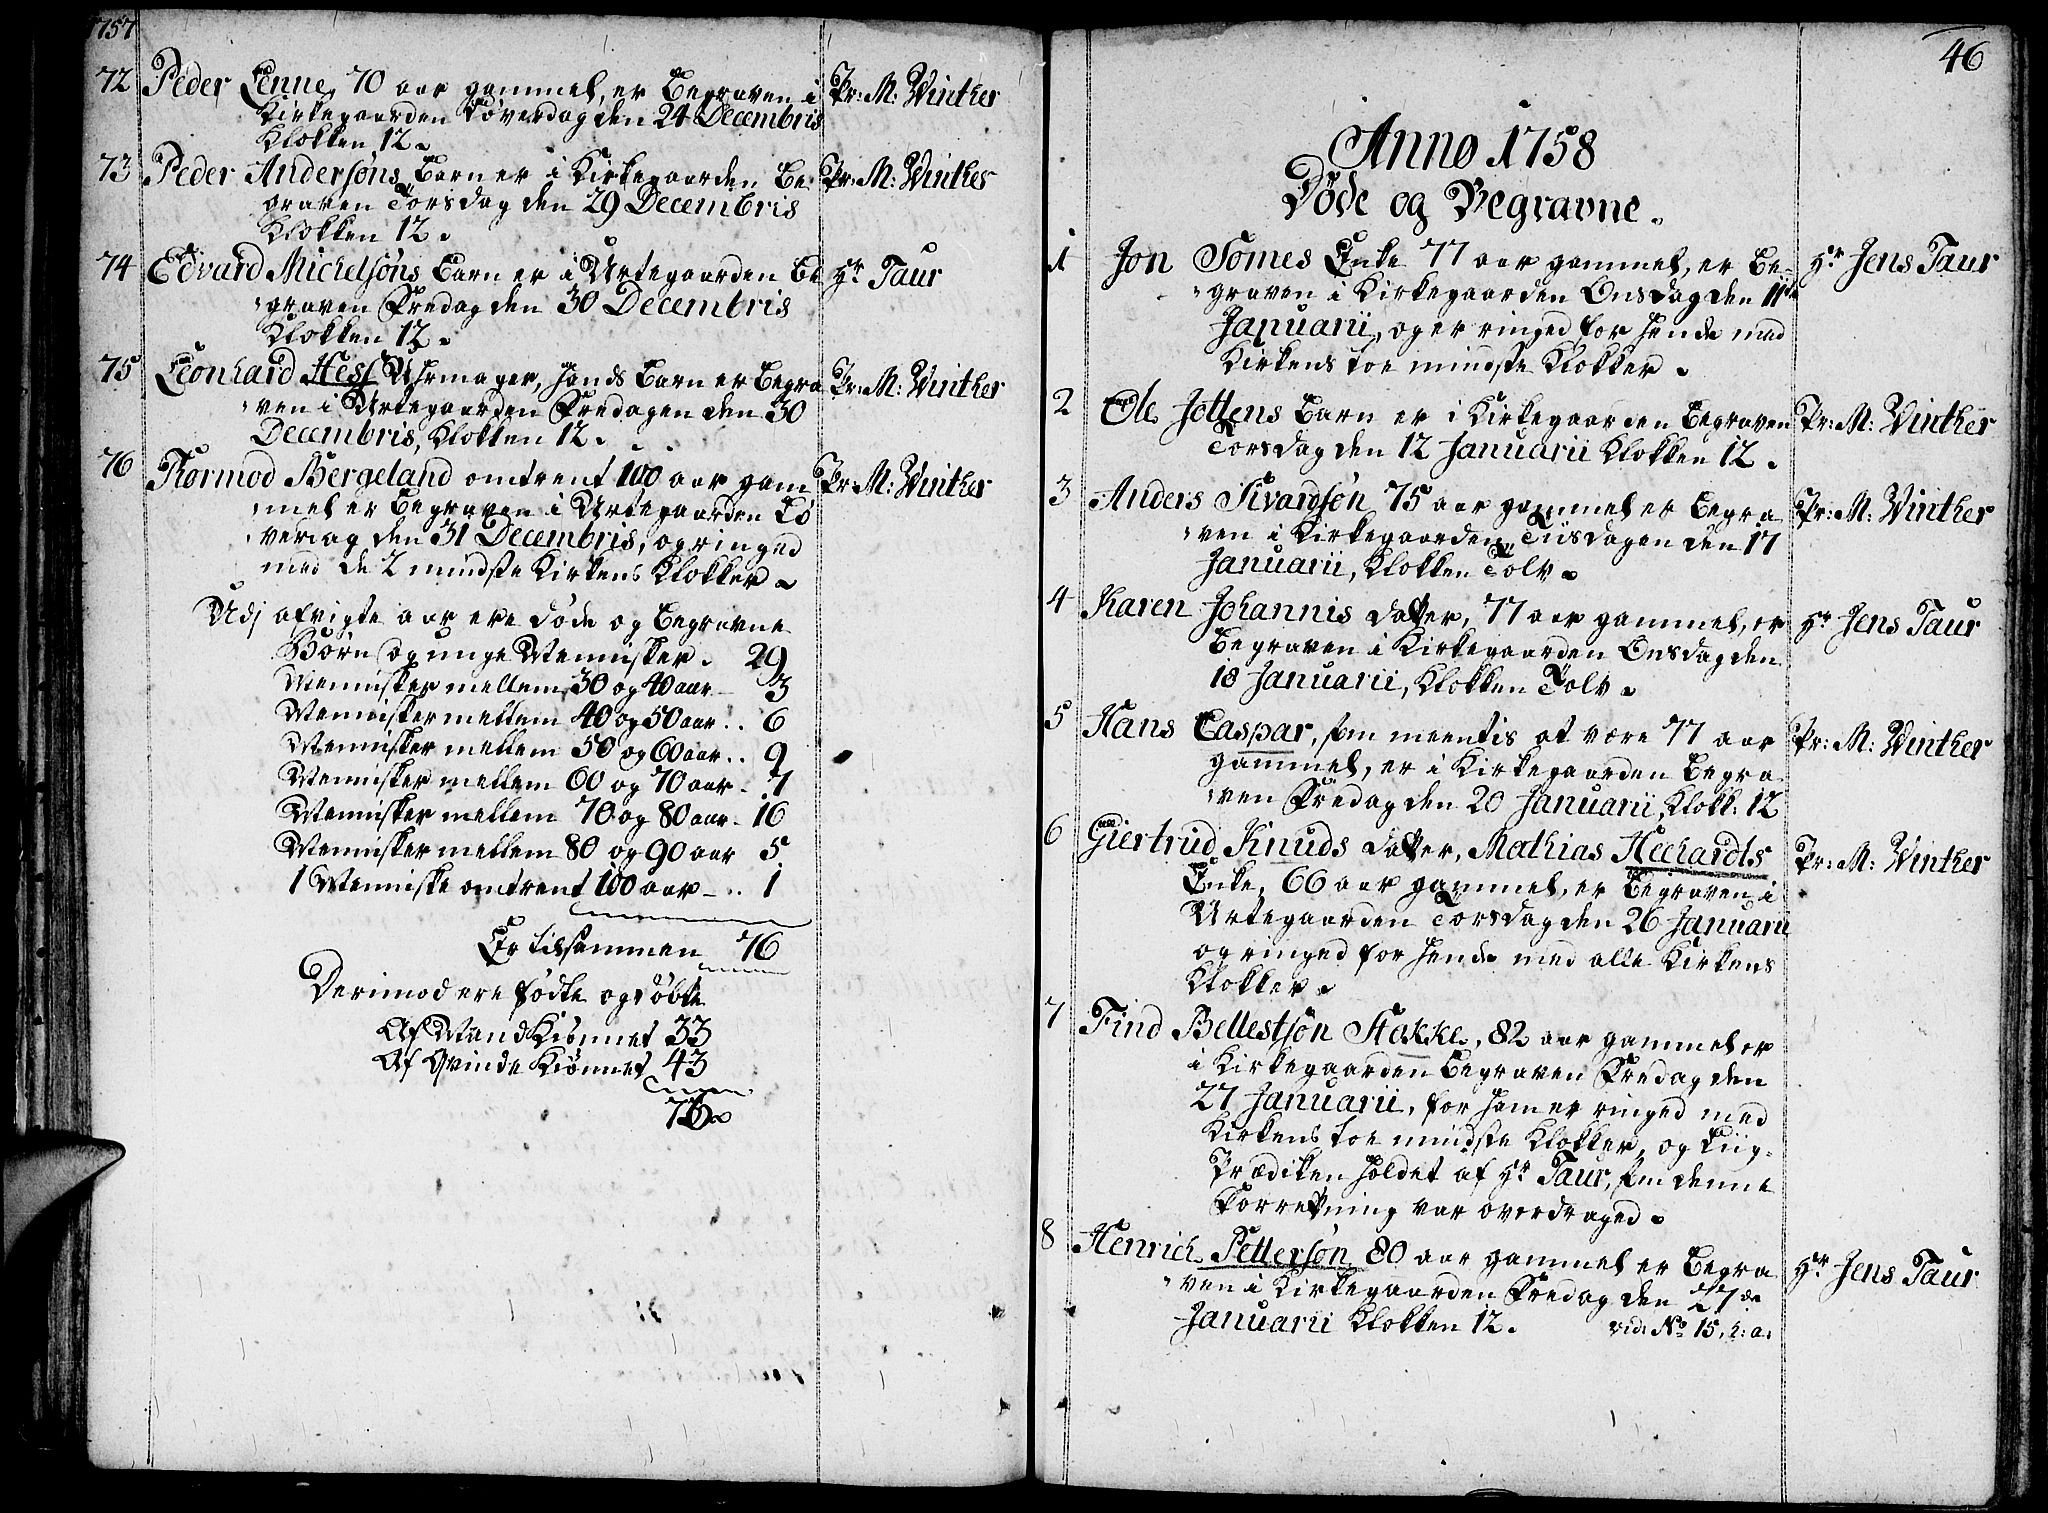 1757
72 Peder Lenne, 70 aar gammel, er Begraven i Pr: M: Vinther
Kirkegaarden Løverdag den 24 Decembris
Klokken 12.
73 Peder Andersøns Barn er i Kirkegaarden Be- Pr: M: Vinther
graven Torsdag den 29 Decembris
Klokken 12.
74 Edvard Michelsøns Barn er i Urtegaarden Be Hr Taur
graven Fredag den 30 Decembris
Klokken 12.
75 Leonhard Hess Uhrmager, hands Barn er Begra Pr: M: Vinther
ven i Urtegaarden Fredagen den 30
Decembris, Klokken 12.
76 Tormod Bergeland omtrent 100 aar gam Pr: M: Vinther
mel er Begraven i Urtegaarden Lø
verdag den 31 Decembris, og ringed
med de 2 mindste Kirkens Klokker.
Udj afvigte aar ere døde og Begravne
Børn og unge Mennisker. 29
Mennisker mellem 30 og 40 aar 3
Mennisker mellem 40 og 50 aar .. 6
Mennisker mellem 50 og 60 aar .. 9
Mennisker mellem 60 og 70 aar - 7
Mennisker mellem 70 og 80 aar - 16
Mennisker mellem 80 og 90 aar 5
1 Menniske omtrent 100 aar - .. 1
Er tilsammen 76
Derimod ere fødte og døbte
Af MandKiønnet 33
Af QvindeKiønnet 43
76
46
Anno 1758
Døde og Begravne.
1 Jon Tomes Enke 77 aar gammel, er Be- Hr Jens Taur
graven i Kirkegaarden Onsdag den 11te
Januarii, og er ringed for hende med
Kirkens toe mindste Klokker.
2 Ole Jottens Barn er i Kirkegaarden Begraven Pr: M: Vinther
Torsdag den 12 Januarii Klokken 12.
3 Anders Sivardsøn 75 aar gammel er Begra Pr: M: Vinther
ven i Kirkegaarden Tiisdagen den 17
Januarii, Klokken Tolv.
4 Karen Johannis datter, 77 aar gammel, er Hr Jens Taur
Begraven i Kirkegaarden Onsdag den
18 Januarii, Klokken Tolv.
5 Hans Caspar, som meentis at være 77 aar Pr: M: Vinther
gammel, er i Kirkegaarden Begra
ven Fredag den 20 Januarii, Klokk: 12
6 Giertrud Knuds datter, Mathias Heehardts Pr: M: Vinther
Enke, 66 aar gammel, er Begraven i
Urtegaarden Torsdag den 26 Januarii
og ringed for hende med alle Kirkens
Klokker.
7 Find Bellestsøn Stakke, 82 aar gammel er
i Kirkegaarden Begraven Fredag den
27 Januarii, for ham er ringed med
Kirkens toe mindste Klokker, og Liig-
Prædiken holdet af Hr Taur, som denne
Forretning var overdraged.
8 Henrich Pettersøn 80 aar gammel er Begra Hr Jens Taur
ven i Kirkegaarden Fredag den 27de
Januarii Klokken 12. vid: No 15, h: a.